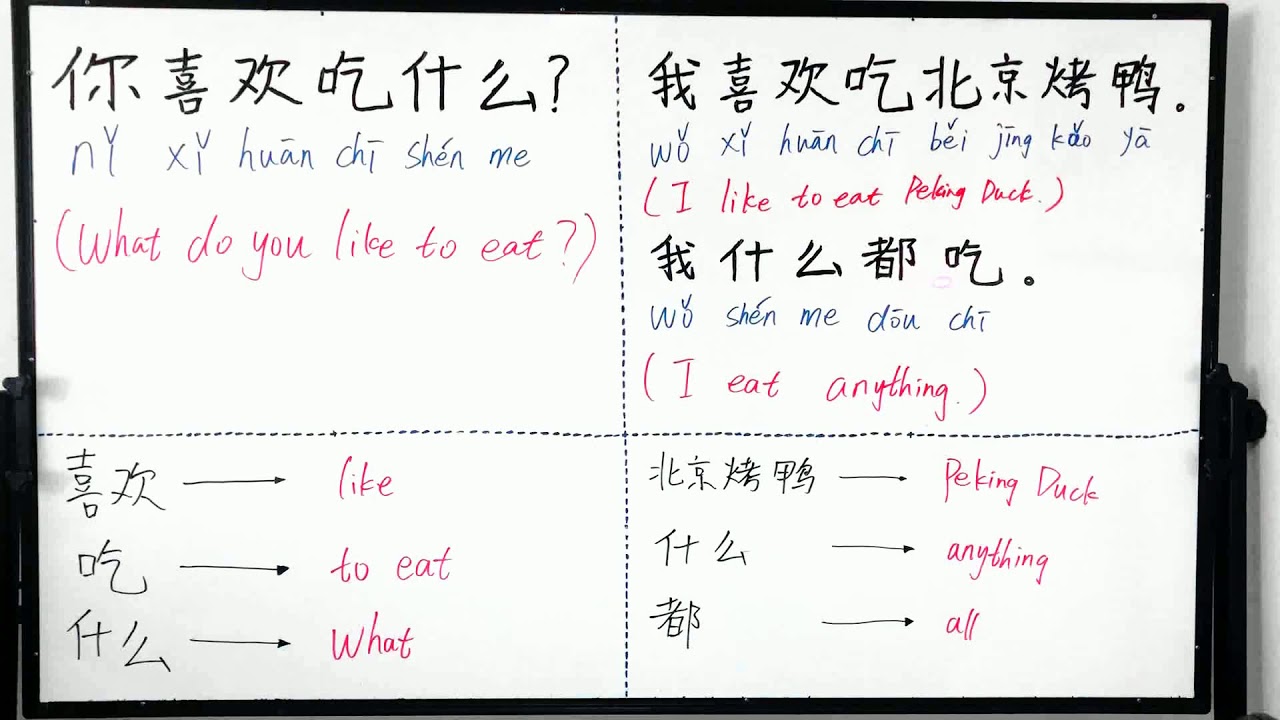 你喜欢吃什么?
nǐ xǐ huān chī shén me
(What do you like to eat?)
我喜欢吃北京烤鸭.
wǒ xǐ huān chī běi jīng kǎo yā
(I like to eat Peking Duck.)
我什么都吃。
wǒ shén me dōu chī
(I eat anything.)
喜欢 → like
吃 → to eat
什么 → What
北京烤鸭 → Peking Duck
什么 → anything
都 → all